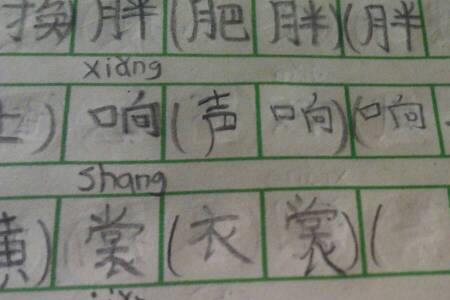 换胖(肥胖)(胖
xiǎng
)响(声响)(响
shang
)裳(衣裳)(